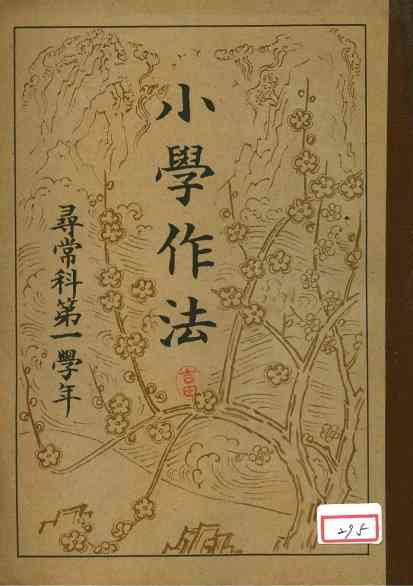 小學作法
尋常科第一學年
吉田
295